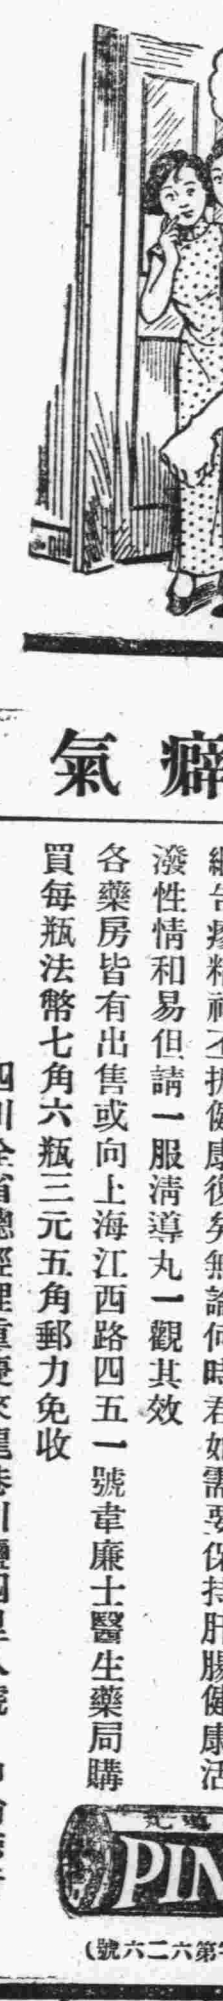 癖氣
精神不振健康復矣無論何時君如需要保持肝腸健康活
潑性情和易但請一服淸導丸一觀其效
各藥房皆有出售或向上海江西路四五一號韋廉士醫生藥局購
買每瓶法幣七角六瓶三元五角郵力免收
四川全省總經理重慶
PIN
第六二六號)